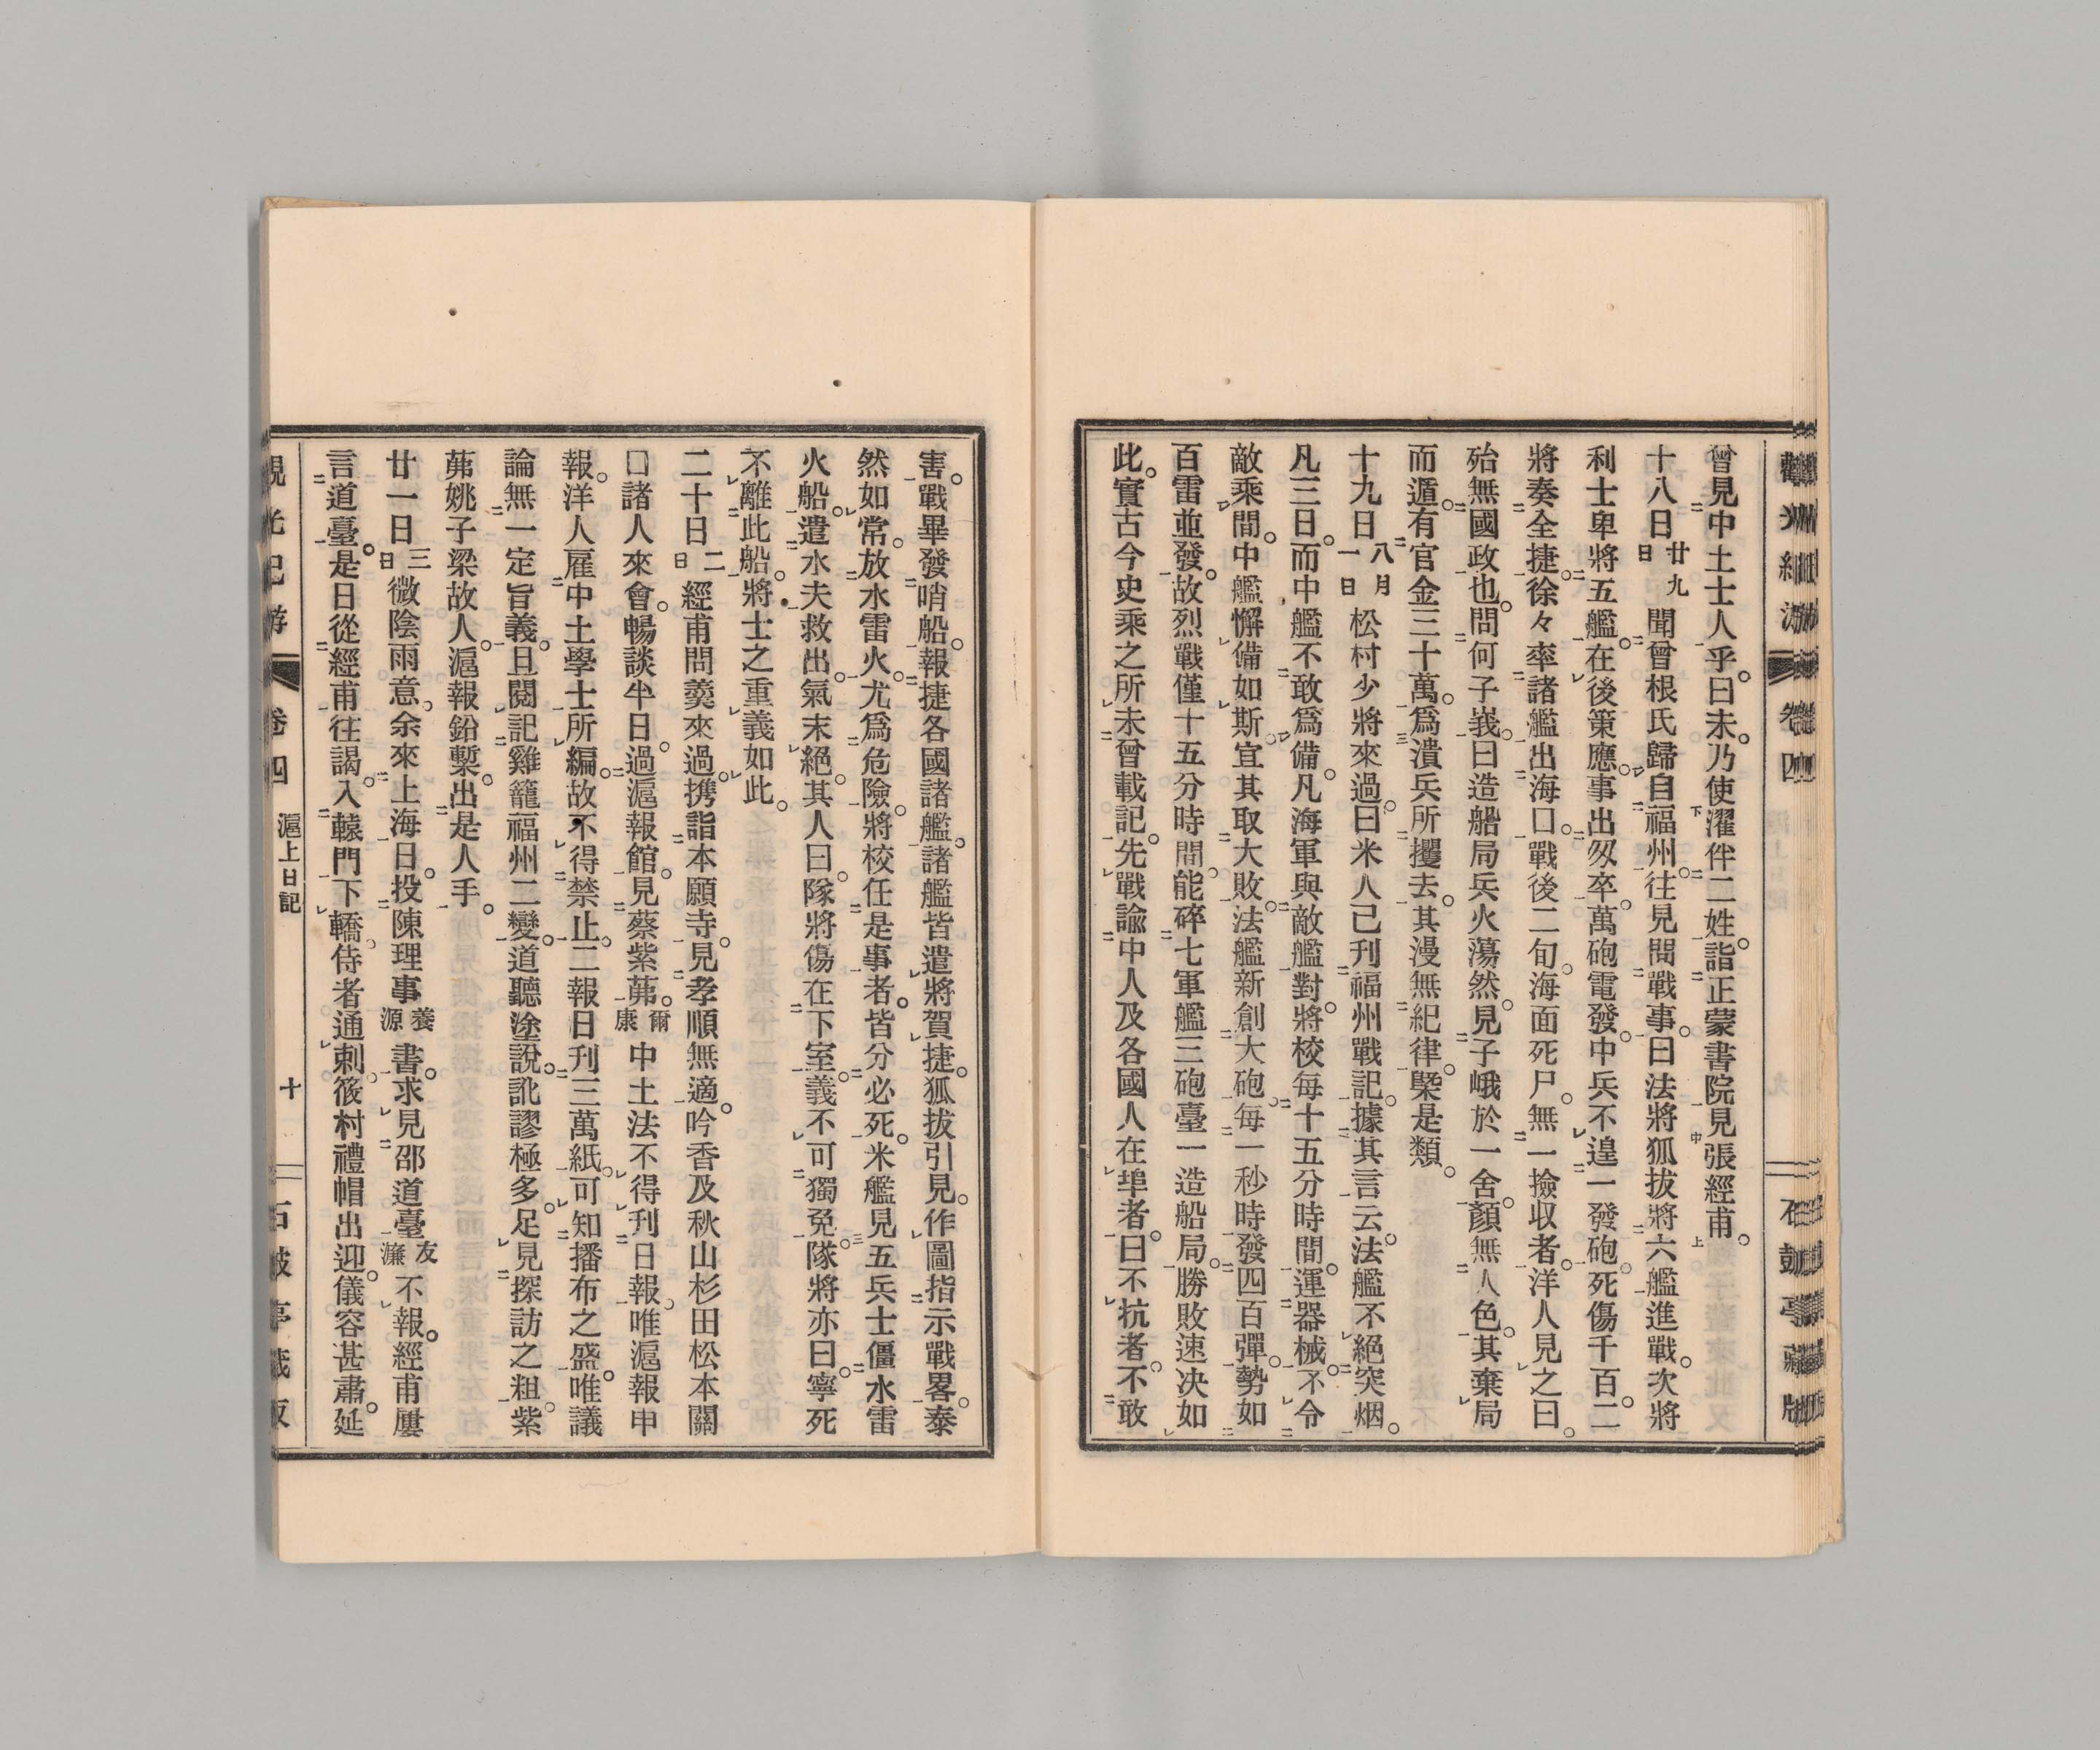 曾見中土士人乎。曰未。乃使濯伴二姓。詣正蒙書院見張經甫。
十八日廿九日聞曾根氏歸自福州。往見問戰事。曰法將狐拔將六艦進戰。次將
利士卑將五艦。在後策應。事出匆卒。萬砲電發。中兵不遑一發砲。死傷千百。二
將奏全捷。徐々率諸艦出海口。戰後二旬。海面死尸。無一撿収者。洋人見之曰。
殆無國政也。問何子峩。曰造船局兵火蕩然。見子峨於一舍。顏無人色。其棄局
而遁。有官金三十萬。爲潰兵所攫去。其漫無紀律。槩是類。
十九日八月一日松村少將來過。曰米人已刊福州戰記。據其言云。法艦不絕突烟。
凡三日。而中艦不敢爲備。凡海軍與敵艦對。將校每十五分時間。運器械。不令
敵乘間。中艦懈備如斯。宜其取大敗。法艦新創大砲。每一秒時發四百彈。勢如
百雷並發。故烈戰僅十五分時間。能碎七軍艦三砲臺一造船局。勝敗速决如
此。實古今史乘之所未曾載記。先戰諭中人及各國人在埠者。曰不抗者。不敢
害。戰畢發哨船。報捷各國諸艦。諸艦皆遣將賀捷。狐拔引見。作圖指示戰畧。泰
然如常。放水雷火。尤爲危險。將校任是事者。皆分必死。米艦見五兵士僵水雷
火船。遣水夫救出。氣未絕。其人曰。隊將傷在下室。義不可獨免。隊將亦曰。寧死
不離此船。將士之重義如此。
二十日二日經甫問羹來過。携詣本願寺。見孝順無適。吟香及秋山杉田松本關
口諸人來會。暢談半日。過滬報館。見蔡紫茀。爾康中土法不得刊日報。唯滬報申
報。洋人雇中土學士所編。故不得禁止。二報日刊三萬紙。可知播布之盛。唯議
論無一定旨義。且閱記雞籠福州二變。道聽塗說。訛謬極多。足見探訪之粗。紫
茀姚子梁故人。滬報鉛槧。出是人手。
廿一日三日微陰雨意。余來上海日。投陳理事養源書。求見邵道臺友濂不報。經甫屢
言道臺。是日從經甫往謁。入轅門下轎。侍者通刺。筱村禮帽出迎。儀容甚肅。延
卷四
滬上日記
十